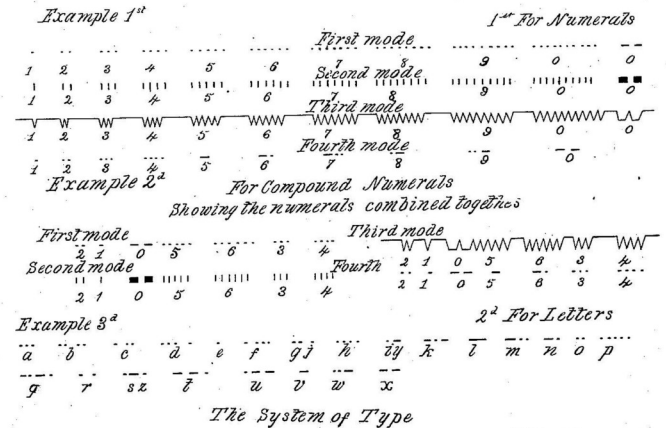 Example 1st 1st For Numerals
First mode
1 2 3 4 5 6 7 8 9 0 0
Second mode
1 2 3 4 5 6 7 8 9 0 0
Third mode
1 2 3 4 5 6 7 8 9 0 0
Fourth mode
1 2 3 4 5 6 7 8 9 0
Example 2d For Compound Numerals
Showing the numerals combined together
First mode Third mode
2 1 0 5 6 3 4 2 1 0 5 6 3 4
Second mode Fourth
2 1 0 5 6 3 4 2 1 0 5 6 3 4
Example 3d 2d For Letters
a b c d e f gj h iy k l m n o p
q r sz t u v w x
The System of Type